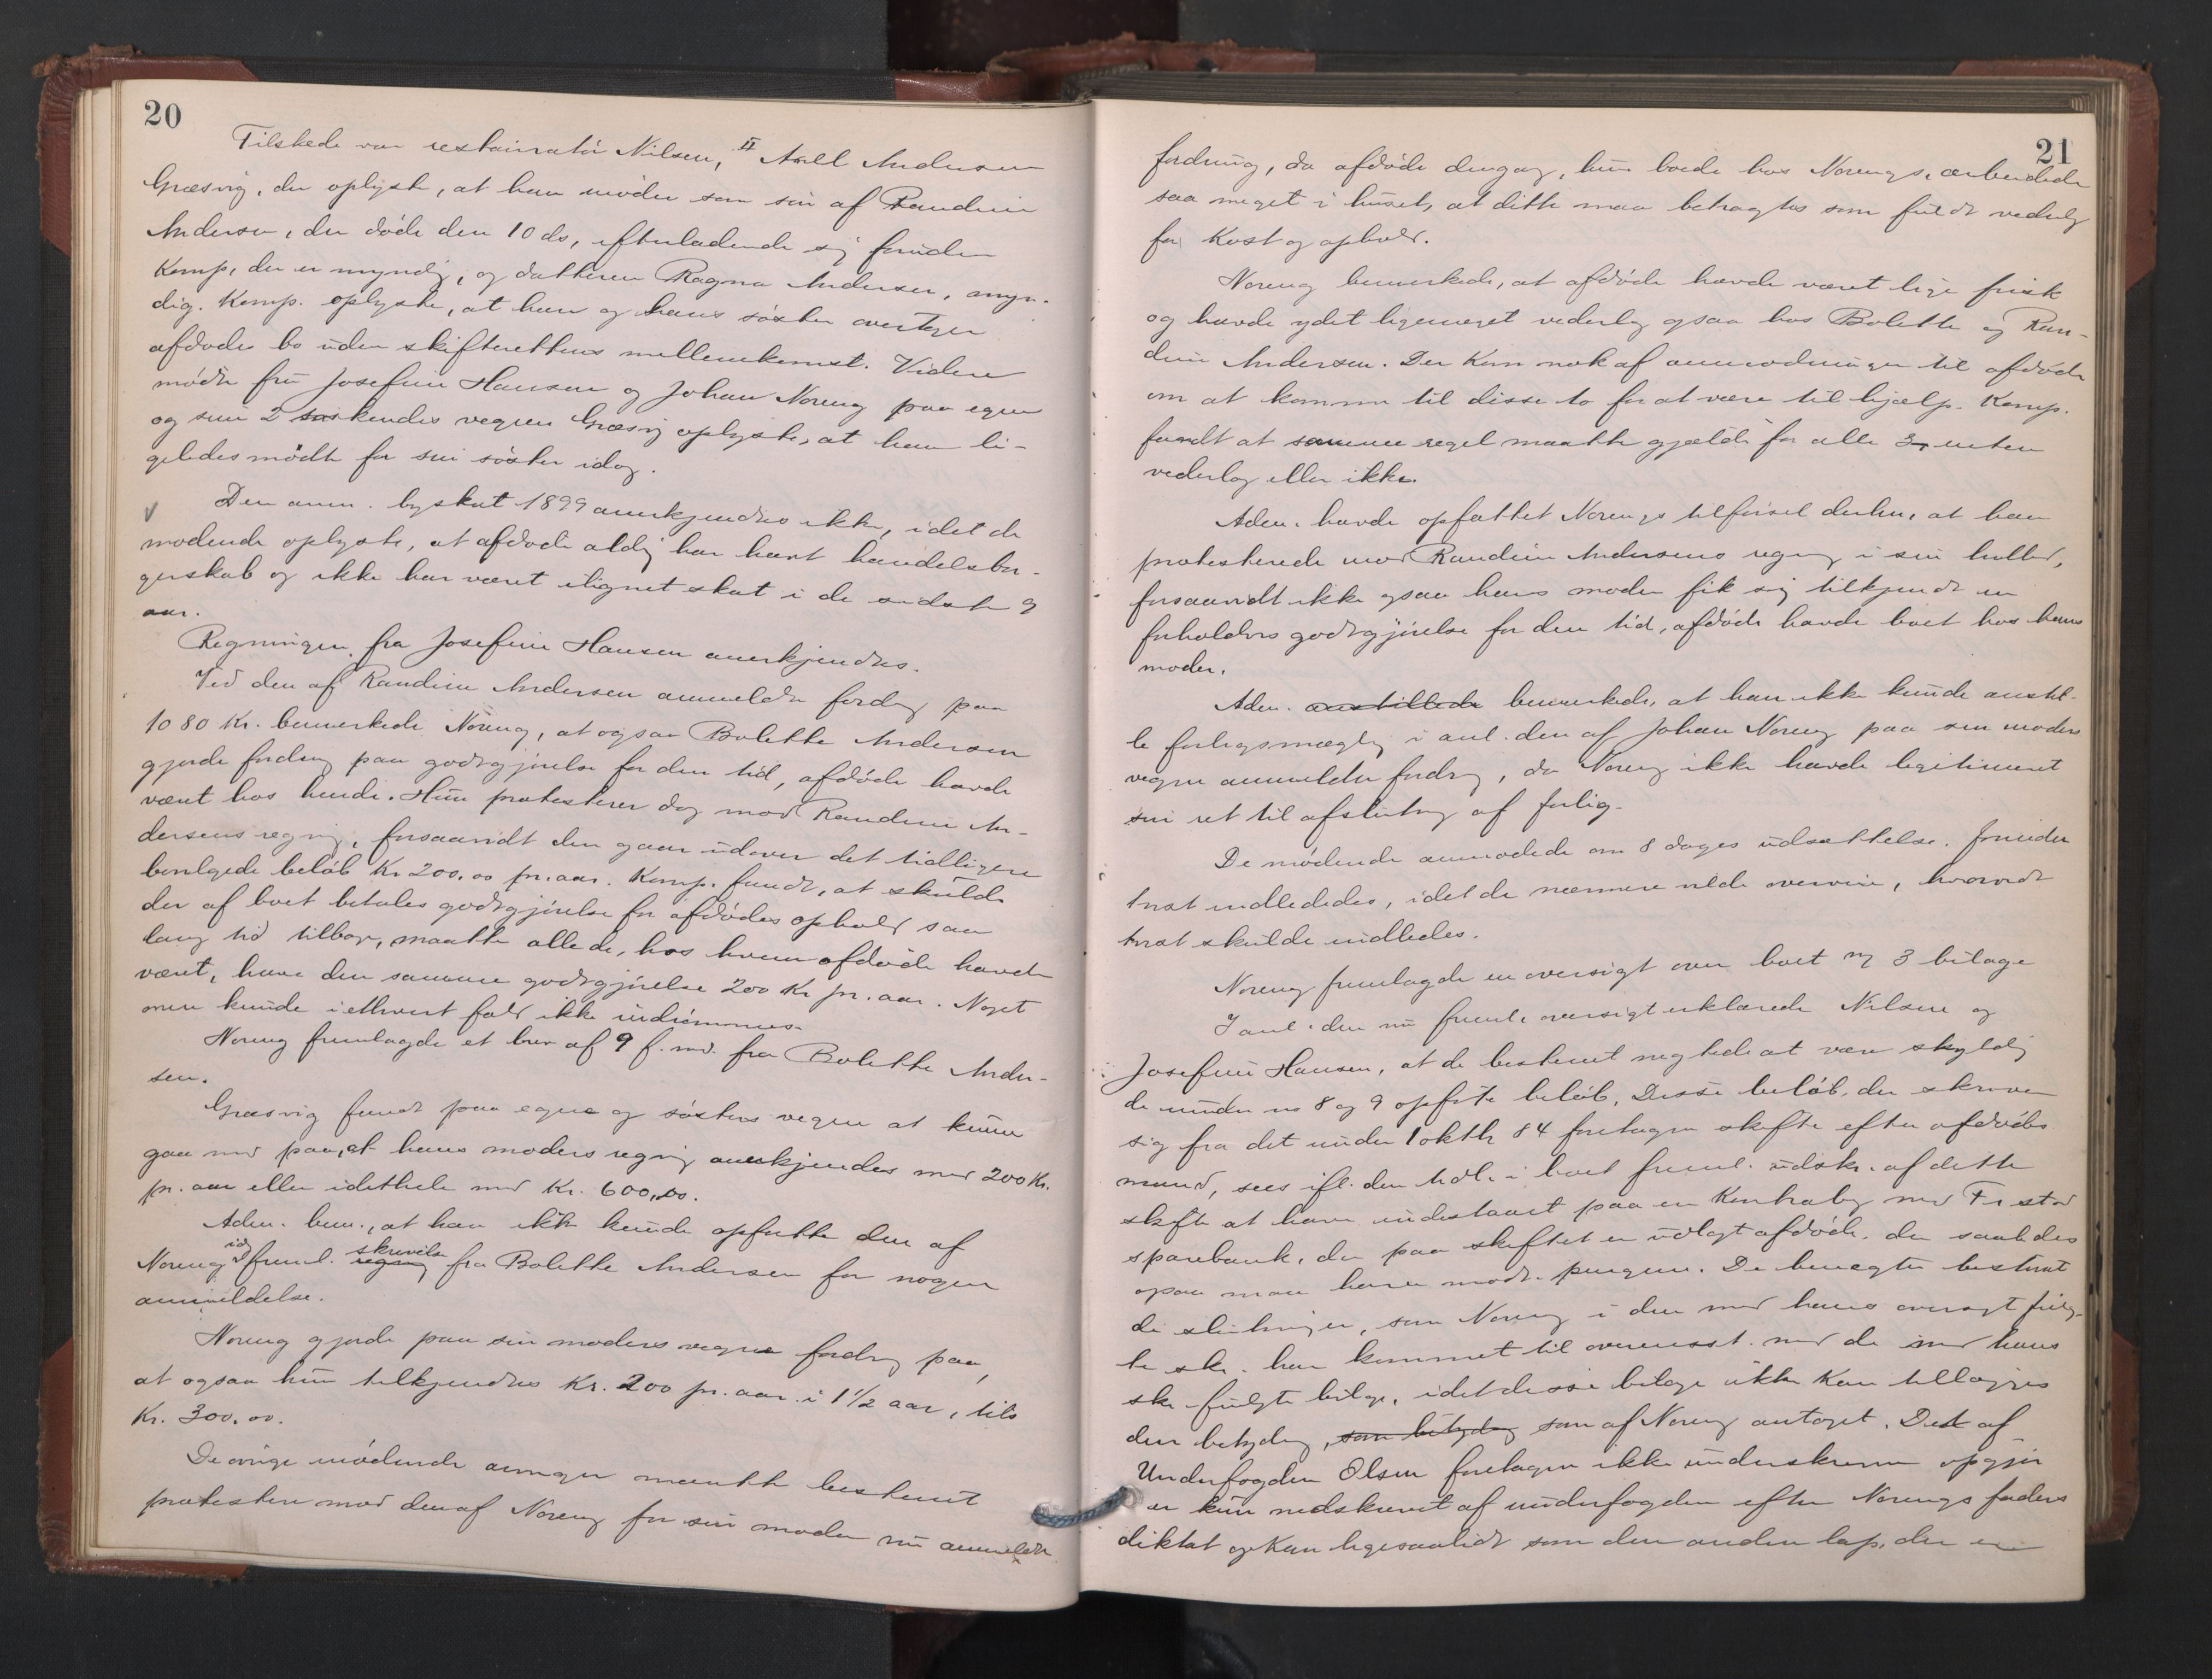 20
Tilstede var restauratør Nilsen, II Axell Andersen
Græsvig, der oplyste, at han møder som søn af Randine
Andersen, der døde den 10 ds, efterladende sig foruden
Komp, der er myndig, og datteren Ragna Andersen, myn-
dig. Komp. oplyste, at han og hans søster overtager
afdødes bo uden skifterettens mellemkomst. Videre
mødte fru Josefine Hansen og Johan Noreng paa egne
og sine 2 søskendes vegne. Græsvig oplyste, at han li-
geledes mødte for sin søster idag.
Den anm. byskat 1899 anerkjendtes ikke, idet de
mødende oplyste, at afdøde aldrig har havt handelsbor-
gerskab og ikke har været ilignet skat i de sidste 9
aar.
Regningen fra Josefine Hansen anerkjendtes.
Ved den af Randine Andersen anmeldte fordrg paa
1080 Kr. bemerkede Noreng, at ogsaa Bolette Andersen
gjorde fordrg paa godtgjørelse for den tid, afdøde havde
været hos hende. Hun protesterer dog mod Randine An-
dersens regng, forsaavidt den gaar udover det tidligere
beregnede beløb Kr 200.00 pr. aar. Komp. fandt, at skulde
der af boet betales godtgjørelse for afdødes ophold saa
lang tid tilbage, maatte alle de, hos hvem afdøde havde
været, have den samme godtgjørelse 200 Kr pr. aar. Noget
mere kunde i ethvert fald ikke indrømmes.
Noreng fremlagde et brev af 9 f. md. fra Bolette Ander-
sen.
Græsvig fandt paa egne og søsters vegne at kunne
gaa med paa, at hans moders regng anerkjendes med 200 Kr.
pr. aar eller idethele med Kr. 600,00.
Adm. bem., at han ikke kunde opfatte den af
Noreng idag freml. regning skrivelse fra Bolette Andersen for nogen
anmeldelse.
Noreng gjorde paa sin moders vegne fordrg paa,
at ogsaa hun tilkjendtes Kr. 200 pr. aar i 1 1/2 aar, tils
Kr. 300.00.
De øvrige mødende arvinger maatte bestemt
protestere mod den af Noreng for sin moder nu anmeldte
21
fordring, da afdøde dengang, hun boede hos Norengs, arbeidede
saa meget i huset, at dette maa betragtes som fuldt vederlag
for Kost og ophold.
Noreng bemerkede, at afdøde havde været lige frisk
og havde ydet ligemeget vederlag ogsaa hos Bolette og Ran-
dine Andersen. Der kom nok af anmodninger til afdøde
om at komme til disse to for at være til hjælp. Komp.
fandt at samme regel maatte gjælde for alle 3, enten
vederlag eller ikke.
Adm. havde opfattet Norengs tilførsel derhen, at han
protesterede mod Randine Andersens regng i sin helhed,
forsaavidt ikke ogsaa hans moder fik sig tilkjendt en
forholdsvs godtgjørelse for den tid, afdøde havde boet hos hans
moder.
Adm. anstillede bemerkede, at han ikke kunde anstil-
le forligsmægling i anl. den af Johan Noreng paa sin moders
vegne anmeldte fordrg, da Noreng ikke havde legitimeret
sin ret til afslutng af forlig.
De mødende anmodede om 8 dages udsættelse. forinden
tvist indlededes, idet de nærmere vilde overveie, hvorvidt
tvist skulde indledes.
Noreng fremlagde en oversigt over boet m 3 bilage
I anl. den nu freml. oversigt erklærede Nilsen og
Josefine Hansen, at de bestemt negtede at være skyldig
de under no 8 og 9 opførte beløb. Disse beløb, der skriver
sig fra det under 1 oktbr 84 foretagne skifte efter afdødes
mand, sees ifl. den tidl. i boet freml. udskr. af dette
skifte at have indestaaet paa en Kontrabog med Frstad
sparebank, der paa skiftet er udlagt afdøde, der saaledes
ogsaa maa have modt. pengene. De benegter bestemt
de slutninger, som Noreng i den med hans oversigt fulg-
te skr. har kommet til overensst. med de med hans
skr. fulgte bilage, idet disse bilage ikke Kan tillægges
den betydng, som betydng som af Noreng antaget. Det af
Underfogden Olsen foretagne ikke underskrevne opgjør
er kun nedskrevet af underfogden efter Norengs faders
diktat og Kan ligesaalidt som den anden lap, der er